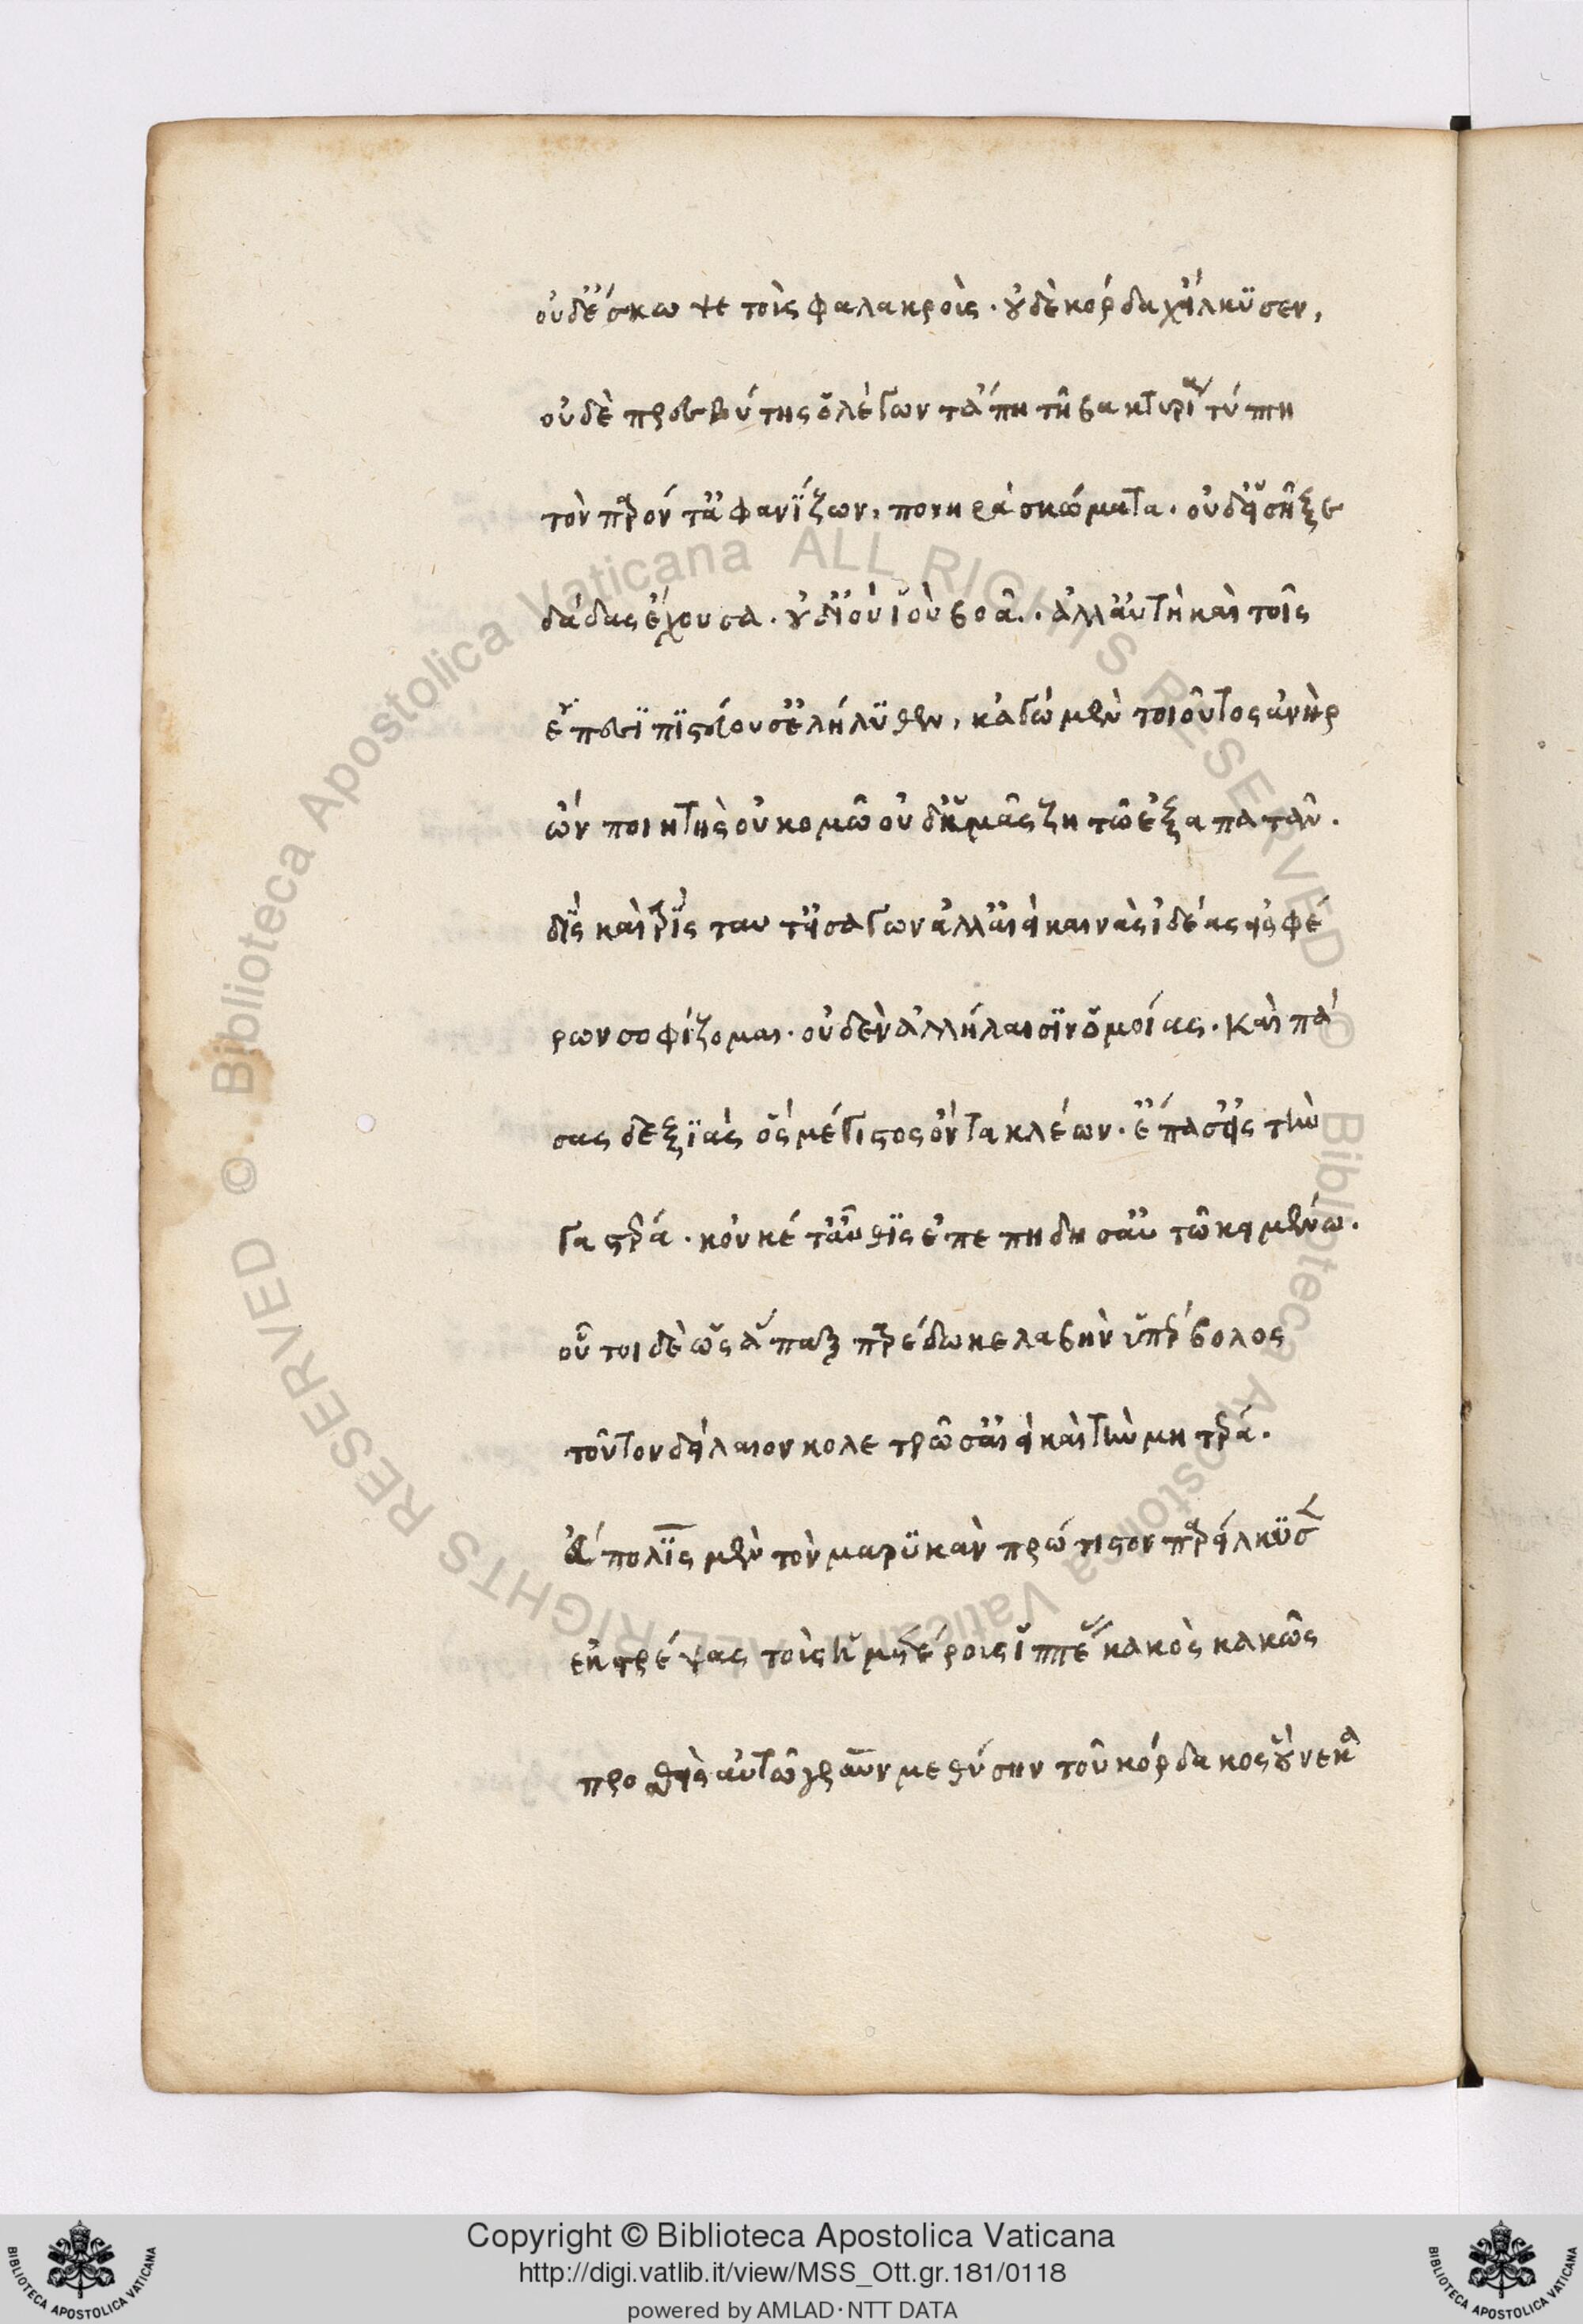 οὐδ' ἔσκωψε τοὺς φαλακροὺς. οὐδὲ κόρδαχ' εἵλκυσεν,
οὐδὲ πρεσβύτης ὁ λέγων τἄπη τῆ βακτηρία τύπτει
τὸν παρόντ' ἀφανίζων, πονηρὰ σκώματα. οὐδ' εἰσῆξε
δᾶδας ἔχουσα. οὐδ' ἰοὺ ἰοὺ βοᾶ. ἀλλ' αὑτῆ καὶ τοῖς
ἔπεσι πιστεύουσ' ἐλήλυθεν, κἀγὼ μὲν τοιοῦτος ἀνὴρ
ὢν ποιητὴς οὐ κομῶ οὐδ' ὑμᾶς ζητῶ ἐξαπατᾶν.
δὶς καὶ τρὶς ταυτ' εἰσάγων ἀλλ' ἀεὶ καινὰς ἰδέας εἰσφέ
ρων σοφίζομαι. οὐδὲν ἀλλήλαισιν ὁμοίας. καὶ πά
σας δεξιάς ὃς μέγιστος ὄντα κλέων. ἔπαισ' εἰς τὴν
γαστέρα. κοὐκ ἔτ' αὖθις ἐπεπήδησ' αὐτῶ κειμένω.
οὗτοι δὲ ὡς ἅπαξ παρέδωκε λαβὴν ὑπέρβολος
τοῦτον δείλαιον κολετρῶσ' ἀεὶ καὶ τὴν μητέρα.
εὔπολις μὲν τὸν μαρικᾶν πρώτιστον παρείλκυσεν
ἐκστρέψας τοὺς ἡμετέρους ἱππέας κακὸς κακῶς
προσθεὶς αὐτῶ γραῦν μεθύσην τοῦ κόρδακος οὕνεκα
Copyright © Biblioteca Apostolica Vaticana
http://digi.vatlib.it/view/MSS_Ott.gr.181/0118
powered by AMLAD·NTT DATA
© Biblioteca Apostolica Vaticana ALL RIGHTS RESERVED
© Biblioteca Apostolica Vaticana ALL RIGHTS RESERVED
BIBLIOTECA APOSTOLICA VATICANA
BIBLIOTECA APOSTOLICA VATICANA